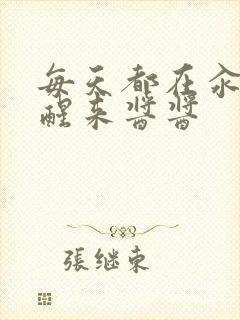 每天都在汆
醒来酱酱
張继東